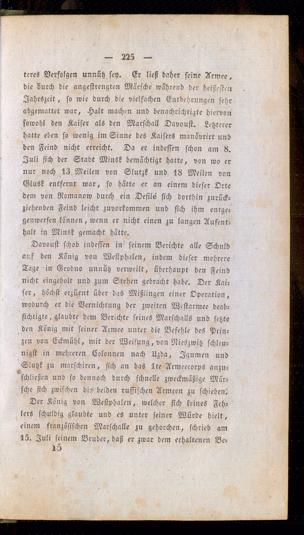 — 225 —
teres Verfolgen unnütz sey. Er ließ daher seine Armee,
die durch die angestrengten Märsche während der heißesten
Jahreszeit, so wie durch die vielfachen Entbehrungen sehr
abgemattet war, Halt machen und benachrichtigte hiervon
sowohl den Kaiser als den Marschall Davoust. Letzterer
hatte eben so wenig im Sinne des Kaisers manövrirt und
den Feind nicht erreicht. Da er indessen schon am 8.
Juli sich der Stadt Minsk bemächtigt hatte, von wo er
nur noch 13 Meilen von Slutzk und 18 Meilen von
Glusk entfernt war, so hätte er an einem dieser Orte
dem von Romanow durch ein Defilé sich dorthin zurück-
ziehenden Feind leicht zuvorkommen und sich ihm entge-
genwerfen können, wenn er nicht einen zu langen Aufent-
halt in Minsk gemacht hätte.
Davoust schob indessen in seinem Berichte alle Schuld
auf den König von Westphalen, indem dieser mehrere
Tage in Grodno unnütz verweilt, überhaupt den Feind
nicht eingeholt und zum Stehen gebracht habe. Der Kai-
ser, höchst erzürnt über das Mißlingen einer Operation,
wodurch er die Vernichtung der zweiten Westarmee beab-
sichtigte, glaubte dem Berichte seines Marschalls und setzte
den König mit seiner Armee unter die Befehle des Prin-
zen von Eckmühl, mit der Weisung, von Nieszwitz schleu-
nigst in mehreren Colonnen nach Uzda, Igumen und
Sluzk zu marschiren, sich an das 1te Armeecorps anzu-
schließen und so dennoch durch schnelle zweckmäßige Mär-
sche sich zwischen die beiden russischen Armeen zu schieben.
Der König von Westphalen, welcher sich keines Feh-
lers schuldig glaubte und es unter seiner Würde hielt,
einem französischen Marschalle zu gehorchen, schrieb am
15. Juli seinem Bruder, daß er zwar dem erhaltenen Be-
15